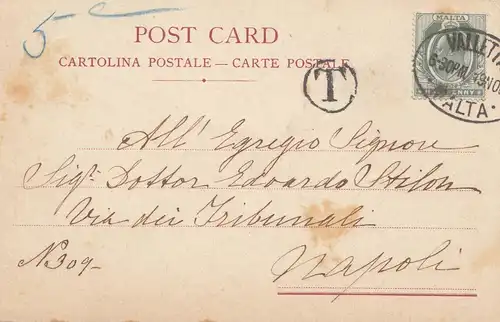 5-c
POST CARD
CARTOLINA POSTALE — CARTE POSTALE
T
MALTA
VALLETTA
5·30PM
MALTA·
All' Egregio Signore
Sigr. Dottor Edoardo Stilon
Via dei Tribunali
N. 309-
Napoli